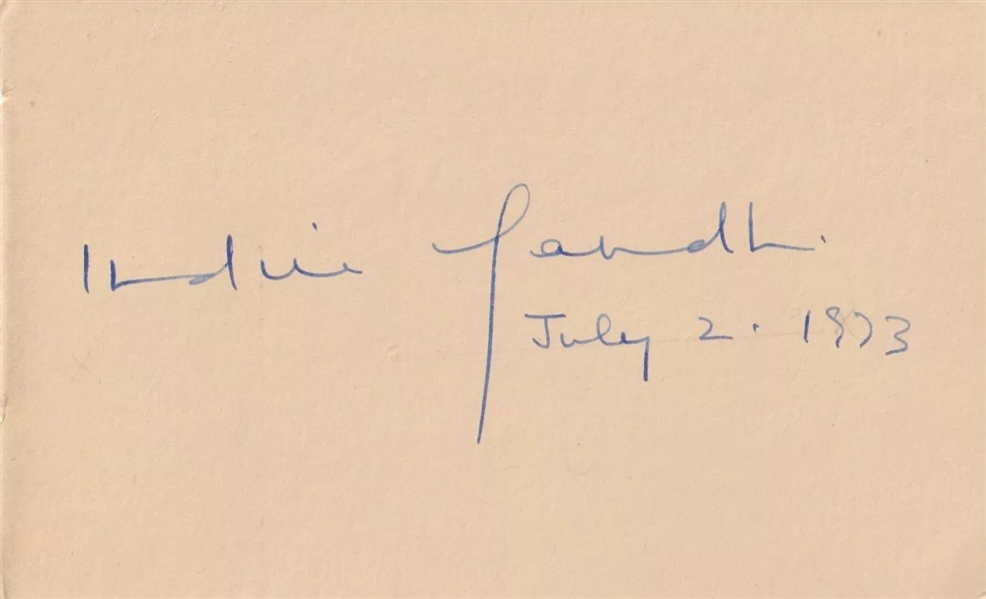 Indira Gandhi
July 2. 1973